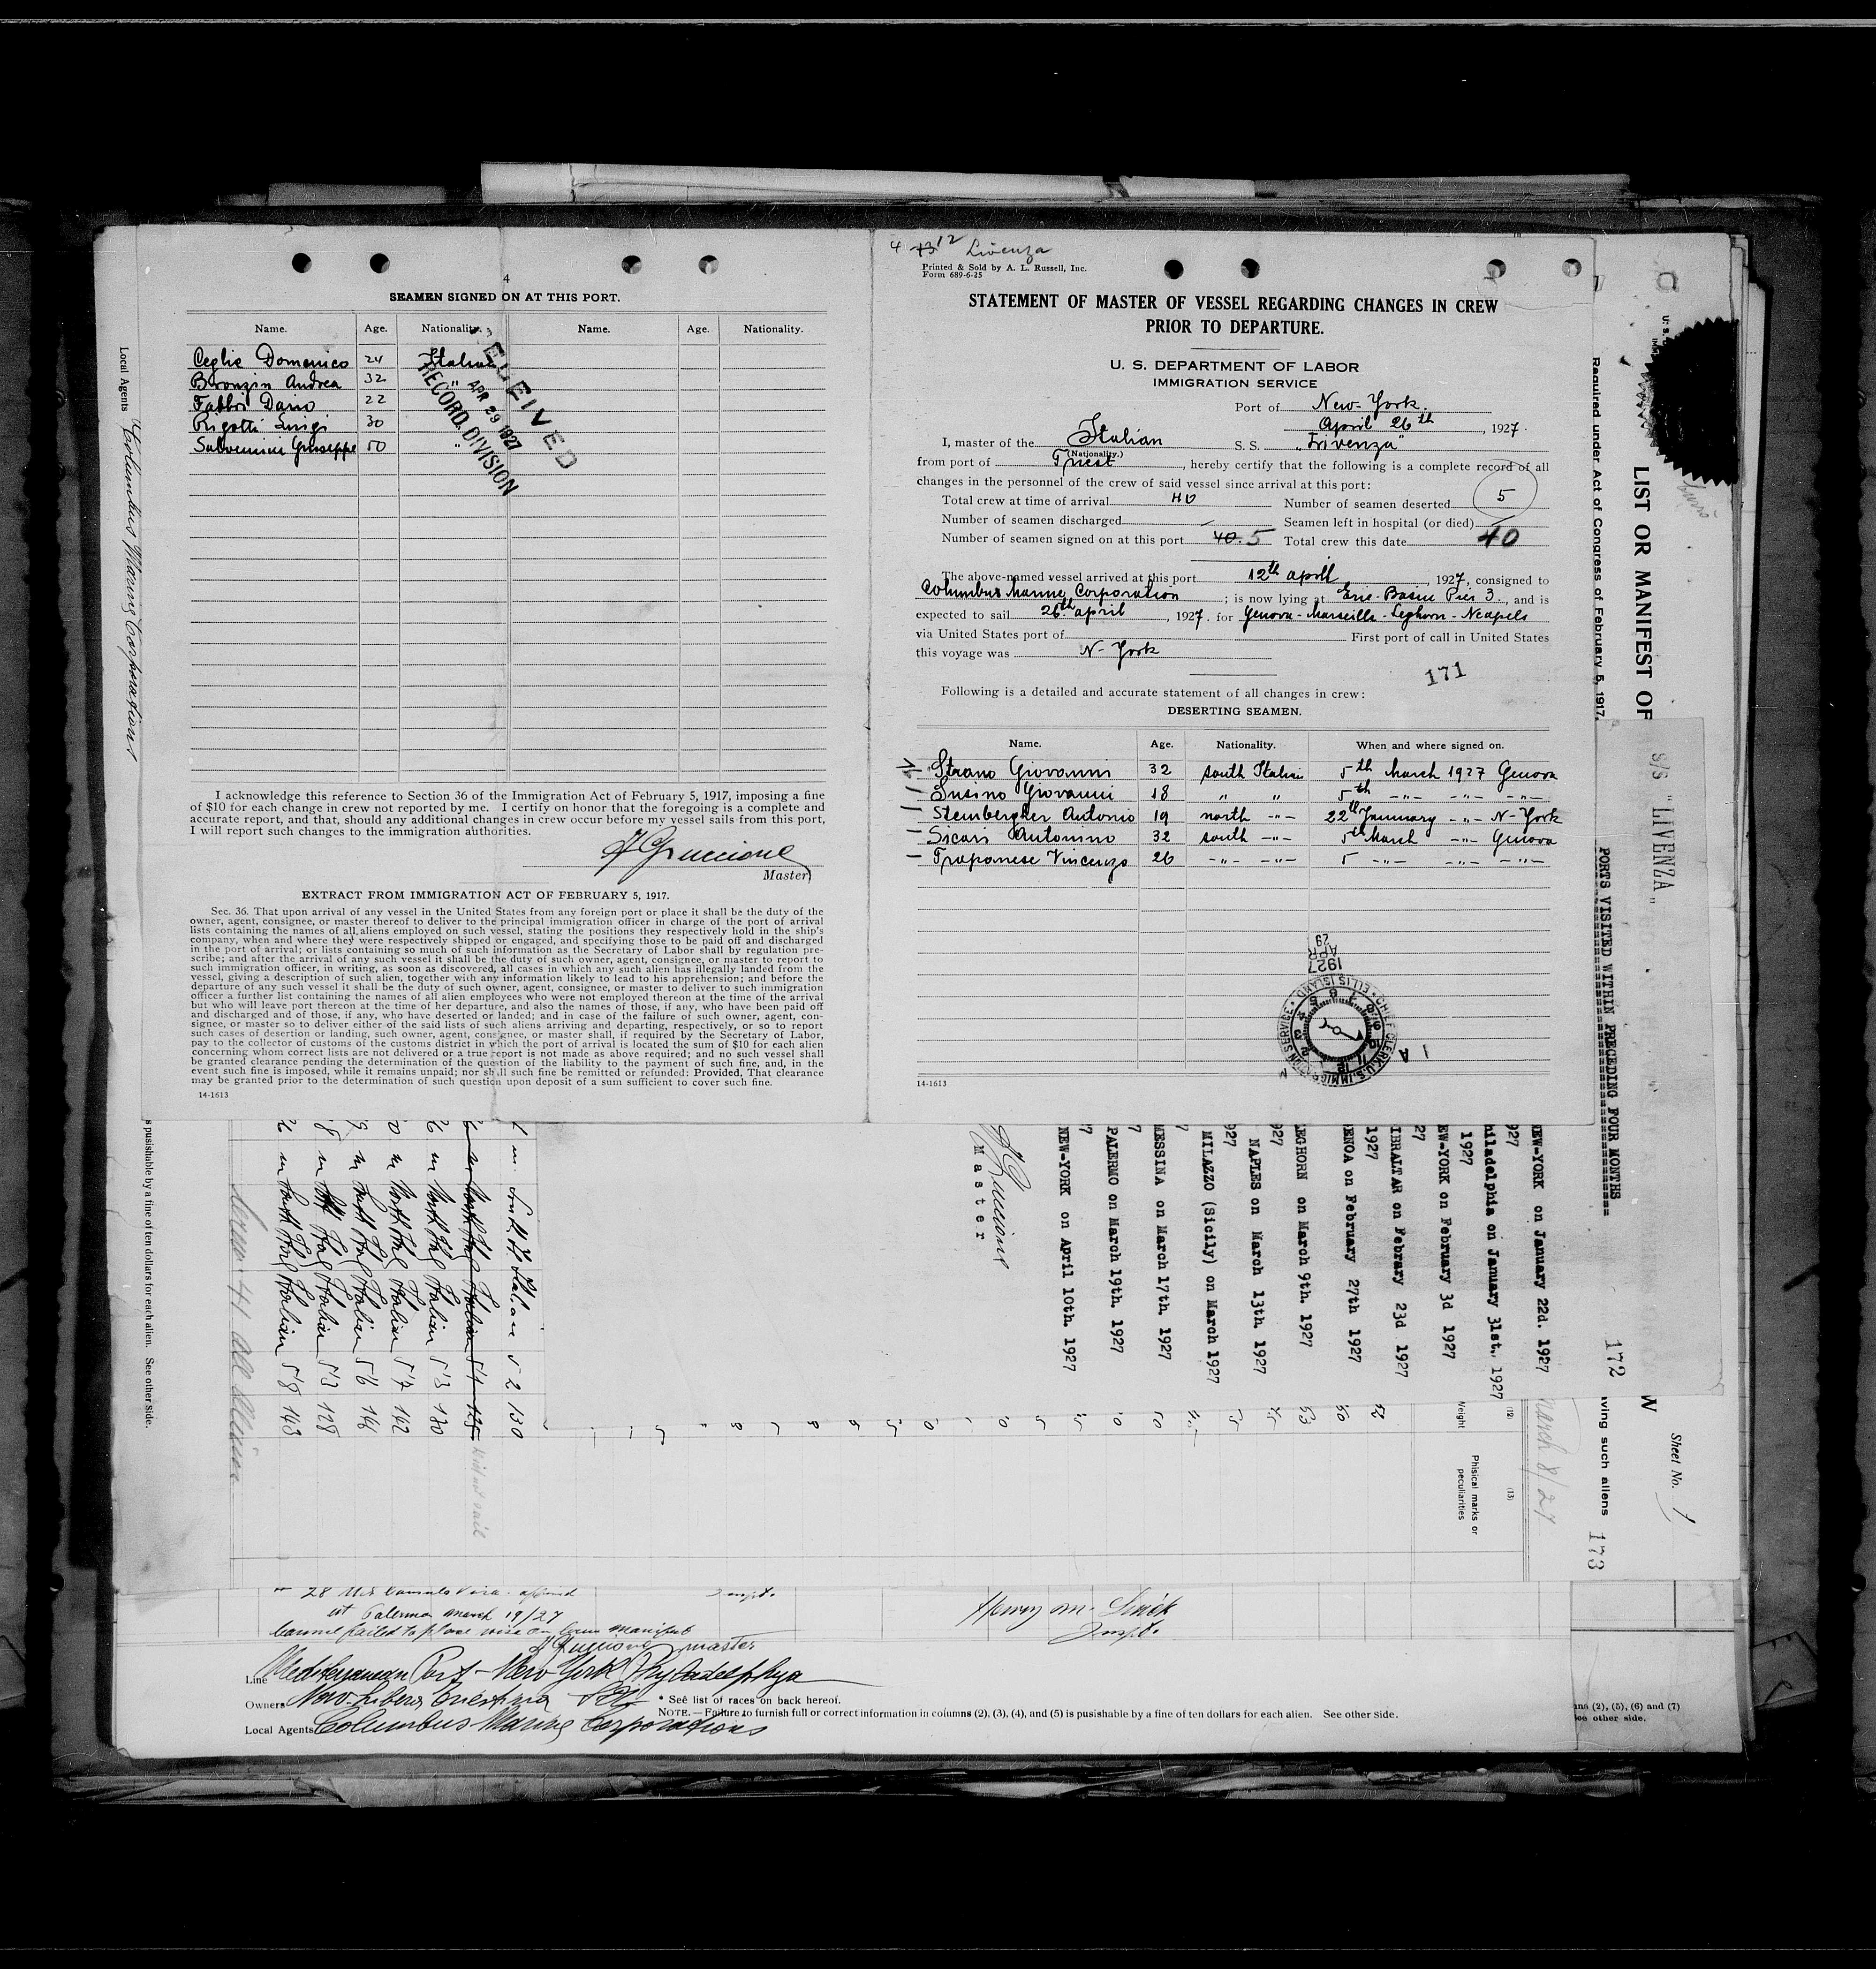 4
SEAMEN SIGNED ON AT THIS PORT.
Name. Age. Nationality. Name. Age. Nationality.
Ceglie Domenico 24 Italian
Baronzin Andrea 32 "
Fabbri Dario 22
Rigotti Luigi 30
Salvemini Giuseppe 50 "
RECEIVED
APR 29 1927
RECORD DIVISION
I acknowledge this reference to Section 36 of the Immigration Act of February 5, 1917, imposing a fine
of $10 for each change in crew not reported by me. I certify on honor that the foregoing is a complete and
accurate report, and that, should any additional changes in crew occur before my vessel sails from this port,
I will report such changes to the immigration authorities.
Master
EXTRACT FROM IMMIGRATION ACT OF FEBRUARY 5, 1917.
Sec. 36. That upon arrival of any vessel in the United States from any foreign port or place it shall be the duty of the
owner, agent, consignee, or master thereof to deliver to the principal immigration officer in charge of the port of arrival
lists containing the names of all aliens employed on such vessel, stating the positions they respectively hold in the ship's
company, when and where they were respectively shipped or engaged, and specifying those to be paid off and discharged
in the port of arrival; or lists containing so much of such information as the Secretary of Labor shall by regulation pre-
scribe; and after the arrival of any such vessel it shall be the duty of such owner, agent, consignee, or master to report to
such immigration officer, in writing, as soon as discovered, all cases in which any such alien has illegally landed from the
vessel, giving a description of such alien, together with any information likely to lead to his apprehension; and before the
departure of any such vessel it shall be the duty of such owner, agent, consignee, or master to deliver to such immigration
officer a further list containing the names of all alien employees who were not employed thereon at the time of the arrival
but who will leave port thereon at the time of her departure, and also the names of those, if any, who have been paid off
and discharged and of those, if any, who have deserted or landed; and in case of the failure of such owner, agent, con-
signee, or master so to deliver either of the said lists of such aliens arriving and departing, respectively, or so to report
such cases of desertion or landing, such owner, agent, consignee, or master shall, if required by the Secretary of Labor,
pay to the collector of customs of the customs district in which the port of arrival is located the sum of $10 for each alien
concerning whom correct lists are not delivered or a true report is not made as above required; and no such vessel shall
be granted clearance pending the determination of the question of the liability to the payment of such fine, and, in the
event such fine is imposed, while it remains unpaid; nor shall such fine be remitted or refunded: Provided, That clearance
may be granted prior to the determination of such question upon deposit of a sum sufficient to cover such fine.
14-1613
Local Agents Columbus Marine Corporations
4 12 Livenza
Printed & Sold by A. L. Russell, Inc.
Form 689-6-25
STATEMENT OF MASTER OF VESSEL REGARDING CHANGES IN CREW
PRIOR TO DEPARTURE.
U. S. DEPARTMENT OF LABOR
IMMIGRATION SERVICE
Port of New-York.
April 26th, 1927.
I, master of the Italian S. S. "Livenza"
(Nationality.)
from port of Triest, hereby certify that the following is a complete record of all
changes in the personnel of the crew of said vessel since arrival at this port:
Total crew at time of arrival 40 Number of seamen deserted 5
Number of seamen discharged Seamen left in hospital (or died)
Number of seamen signed on at this port 40. 5 Total crew this date 40
The above-named vessel arrived at this port 12th april, 1927, consigned to
Columbus Marine Corporation; is now lying at Erie-Basin Pier 3., and is
expected to sail 26th april, 1927. for Genova-Marseille-Leghorn-Neapels
via United States port of First port of call in United States
this voyage was N-York
171
Following is a detailed and accurate statement of all changes in crew:
DESERTING SEAMEN.
Name. Age. Nationality. When and where signed on.
Strano Giovanni 32 South Italian 5th March 1927 Genova
Susino Giovanni 18 " " 5th -"- -"- -"-
Steinbergher Antonio 19 north -"- 22th January -"- N-York
Sicari Antonino 32 south -"- 5th March -"- Genova
Trapanese Vincenzo 26 -"- -"- 5 -"- -"- -"-
1927
APR
29
CHIEF CLERK U.S. IMMIGRATION SERVICE • ELLIS ISLAND
14-1613
LIST OR MANIFEST OF
Required under Act of Congress of February 5, 1917,
Sheet No. 1
ving such aliens 173
S/S "LIVENZA"
172
PORTS VISITED WITHIN PRECEDING FOUR MONTHS
EW-YORK on January 22d. 1927
hiladelphia on January 31st., 1927
EW-YORK on February 3d 1927
IBRALTAR on Febrary 23d 1927
ENOA on February 27th 1927
EGHORN on March 9th. 1927
NAPLES on March 13th. 1927
MILAZZO (Sicily) on March 1927
MESSINA on March 17th. 1927
PALERMO on March 19th. 1927
NEW-YORK on April 10th. 1927
Master
March 8/27
(12) (13)
Weight
Phisical marks or
peculiarities
South Italian 5 2 130
Did not sail
North Italian 53 130
North Italian 57 142
Italian 56
Italian 53 128
South Italian 58 143
s pusishable by a fine of ten dollars for each alien. See other side.
Palermo March 19/27
master
Line Mediterranean Port-New York Phyladelphya
Owners
* See list of races on back hereof.
NOTE.—Failure to furnish full or correct information in columns (2), (3), (4), and (5) is pusishable by a fine of ten dollars for each alien. See other side.
Local Agents Columbus Marine Corporations
(2), (5), (6) and (7)
see other side.